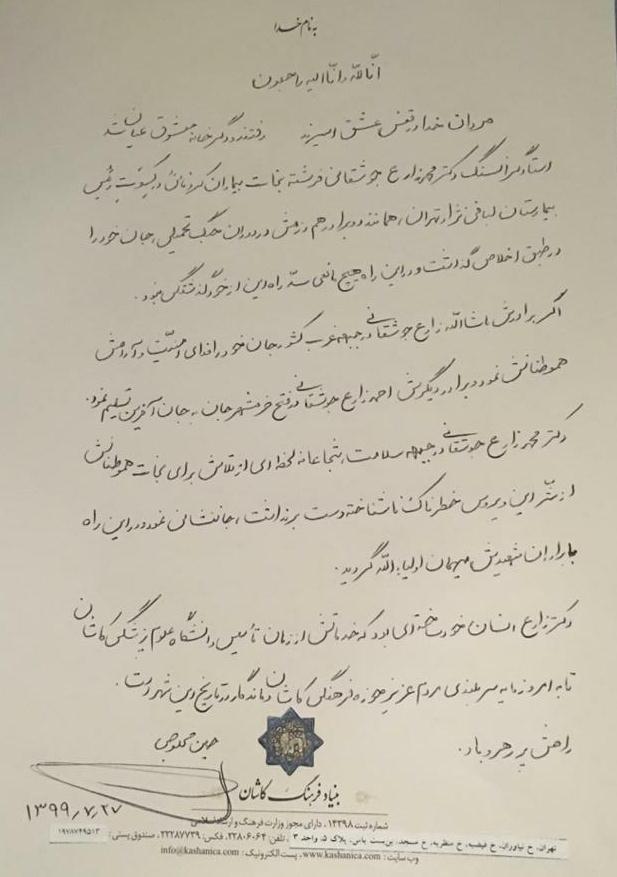 به نام خدا
انّا لله و انّا الیه راجعون
مردان خدا در قفس عشق اسیرند رفتند و دگر خانه معشوق عیان شد
استاد گرانسنگ دکتر محمد زارع جوشقانی فرشته نجات بیماران کرونائی در کسوت رئیس
بیمارستان لبافی نژاد تهران، همانند دو برادر هم رزمش در دوران جنگ تحمیلی، جان خود را
در طبق اخلاص گذاشت و در این راه هیچ مانعی سدّ راه این از خود گذشتگی نبود.
اگر برادرش ماشاالله زارع جوشقانی در جبهه غرب کشور جان خود را فدای امنیّت و آرامش
هموطنانش نمود و برادر دیگرش احمد زارع جوشقانی در فتح خرمشهر جان به جان آفرین تسلیم نمود.
دکتر محمد زارع جوشقانی در جبهه سلامت، شجاعانه لحظه ای از تلاش برای نجات هموطنانش
از شرّ این ویروس خطرناک ناشناخته دست برنداشت، جانفشانی نمود و در این راه
با یاران شهیدش میهمان اولیاء الله گردید.
دکتر زارع انسان خودساخته ای بود که خدماتش از زمان تأسیس دانشگاه علوم پزشکی کاشان
تا به امروز مایه سربلندی مردم عزیز حوزه فرهنگی کاشان و ماندگار در تاریخ این شهر است.
راهش پر رهرو باد.
حسین محلوجی
بنیاد فرهنگ کاشان
۱۳۹۹,۷,۲۷
شماره ثبت ۱۳۳۹۸، دارای مجوز وزارت فرهنگ و ارشاد اسلامی
تهران، خ نیاوران، خ فیضیه، خ منظریه، خ مسجد، بن‌بست یاس، پلاک ۵، واحد ۳، تلفن: ۲۲۸۰۶۰۶۴، فکس: ۲۲۲۸۷۷۳۹، صندوق پستی: ۱۹۷۸۷۴۹۵۱۳
وب سایت: www.kashanica.com، پست الکترونیک: info@kashanica.com